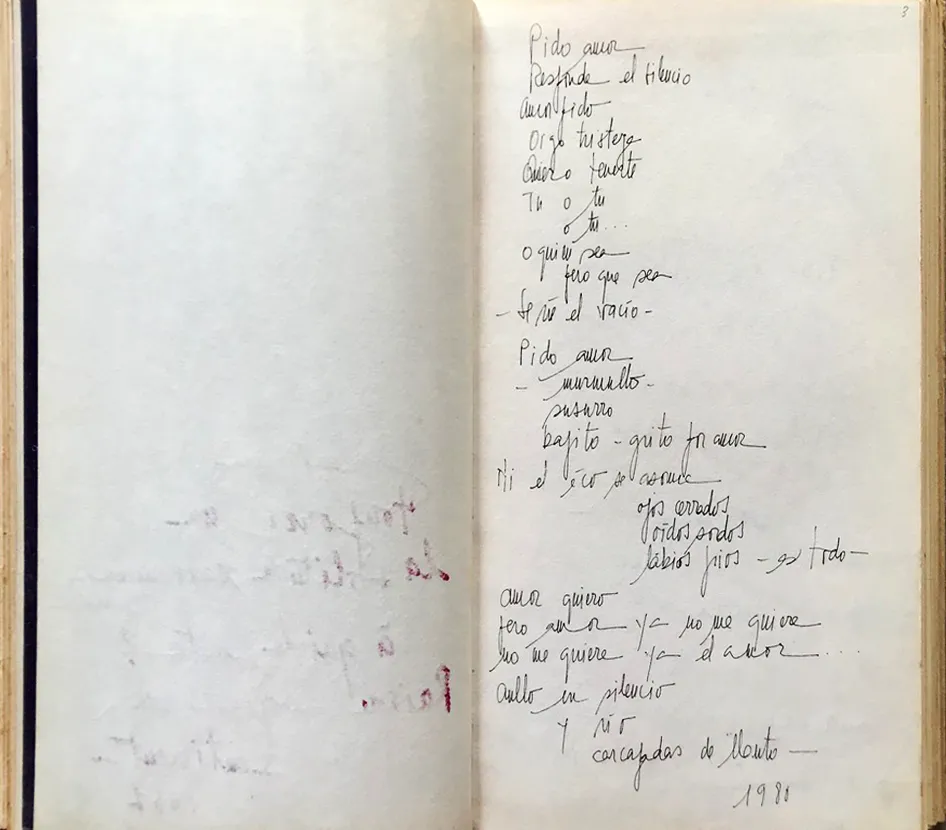 3
Pido amor
Responde el silencio
amor pido
Oigo tristeza
Quiero tenerte
Tu o tu
o tu...
o quien sea
pero que sea
- Se ríe el vacío -
Pido amor
- murmullo -
susurro
bajito - grito por amor
Ni el éco se asoma
ojos cerrados
oídos sordos
lábios fríos - es todo -
amor quiero
pero amor ya no me quiere
no me quiere ya el amor....
aullo en silencio
y río
carcajadas de llanto -
1980